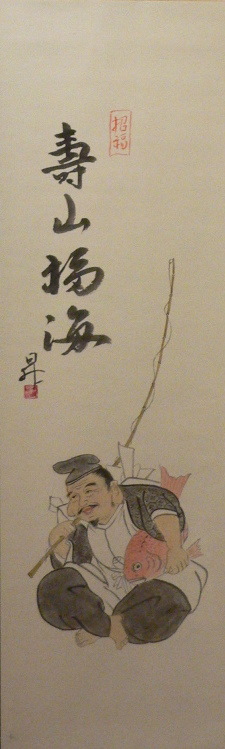 招福
壽山福海
昇